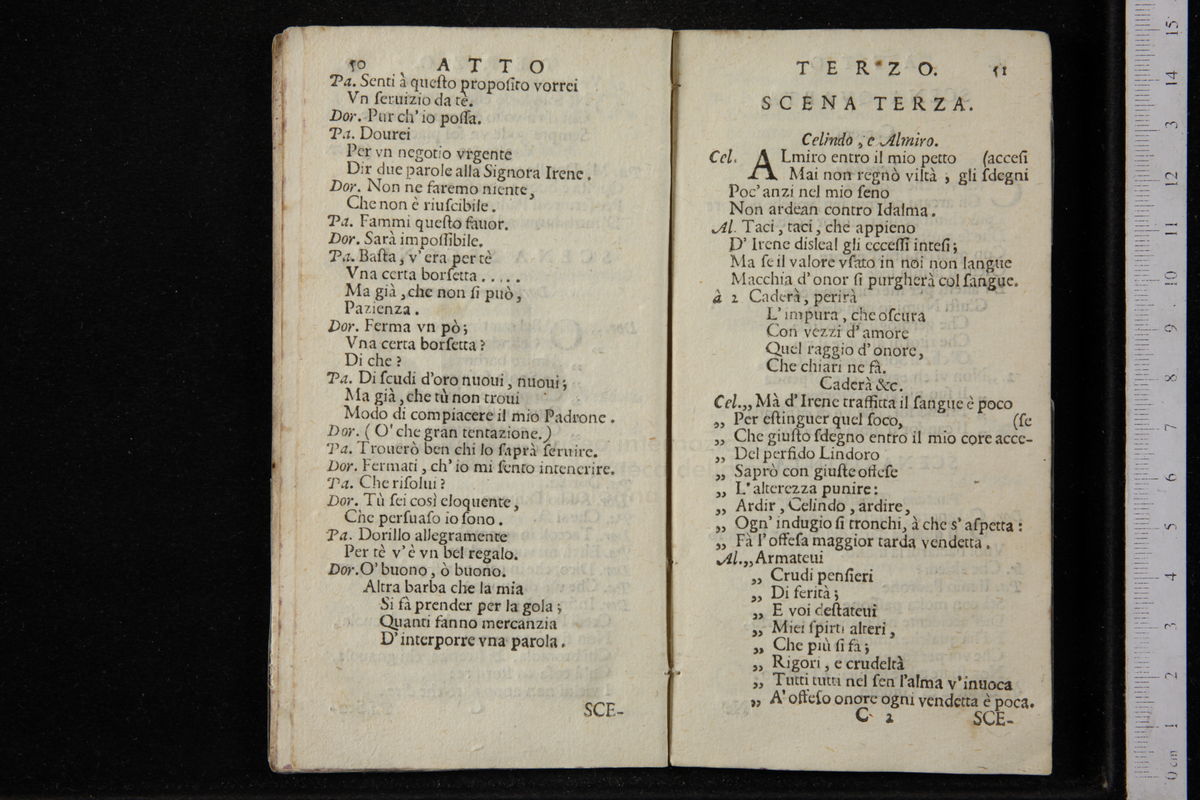 50 ATTO
Pa. Senti à queſto propoſito vorrei
Vn ſeruizio da tè.
Dor. Pur ch' io poſſa.
Pa. Dourei
Per vn negotio vrgente
Dir due parole alla Signora Irene.
Dor. Non ne faremo niente,
Che non è riuſcibile.
Pa. Fammi queſto fauor.
Dor. Sarà impoſſibile.
Pa. Baſta, v' era per tè
Vna certa borſetta . . . . .
Ma già, che non ſi può,
Pazienza.
Dor. Ferma vn pò;
Vna certa borſetta?
Di che?
Pa. Di ſcudi d'oro nuoui, nuoui;
Ma già, che tù non troui
Modo di compiacere il mio Padrone.
Dor. (O' che gran tentazione.)
Pa. Trouerò ben chi lo ſaprà ſeruire.
Dor. Fermati, ch' io mi ſento intenerire.
Pa. Che riſolui?
Dor. Tù ſei così eloquente,
Che perſuaſo io ſono.
Pa. Dorillo allegramente
Per tè v' è vn bel regalo.
Dor. O' buono, ò buono.
Altra barba che la mia
Si fà prender per la gola;
Quanti fanno mercanzia
D' interporre vna parola.
SCE-
TERZO. 51
SCENA TERZA.
Celindo, e Almiro.
Cel. ALmiro entro il mio petto (acceſi
Mai non regnò viltà, gli ſdegni
Poc' anzi nel mio ſeno
Non ardean contro Idalma.
Al. Taci, taci, che appieno
D' Irene disleal gli ecceſſi inteſi;
Ma ſe il valore vſato in noi non langue
Macchia d' onor ſi purgherà col ſangue.
à 2 Caderà, perirà
L' impura, che oſcura
Con vezzi d' amore
Quel raggio d' onore,
Che chiari ne fà.
Caderà &c.
Cel. ,, Mà d' Irene traffitta il ſangue è poco
,, Per eſtinguer quel foco, (ſe
,, Che giuſto ſdegno entro il mio core acce-
,, Del perfido Lindoro
,, Saprò con giuſte offeſe
,, L' alterezza punire:
,, Ardir, Celindo, ardire,
,, Ogn' indugio ſi tronchi, à che s' aſpetta:
,, Fà l' offeſa maggior tarda vendetta.
Al. ,, Armateui
,, Crudi penſieri
,, Di ferità;
,, E voi deſtateui
,, Miei ſpirti alteri,
,, Che più ſi fà;
,, Rigori, e crudeltà
,, Tutti tutti nel ſen l'alma v' inuoca
,, A' offeſo onore ogni vendetta è poca.
C 2 SCE-
0 cm 1 2 3 4 5 6 7 8 9 10 11 12 3 14 15